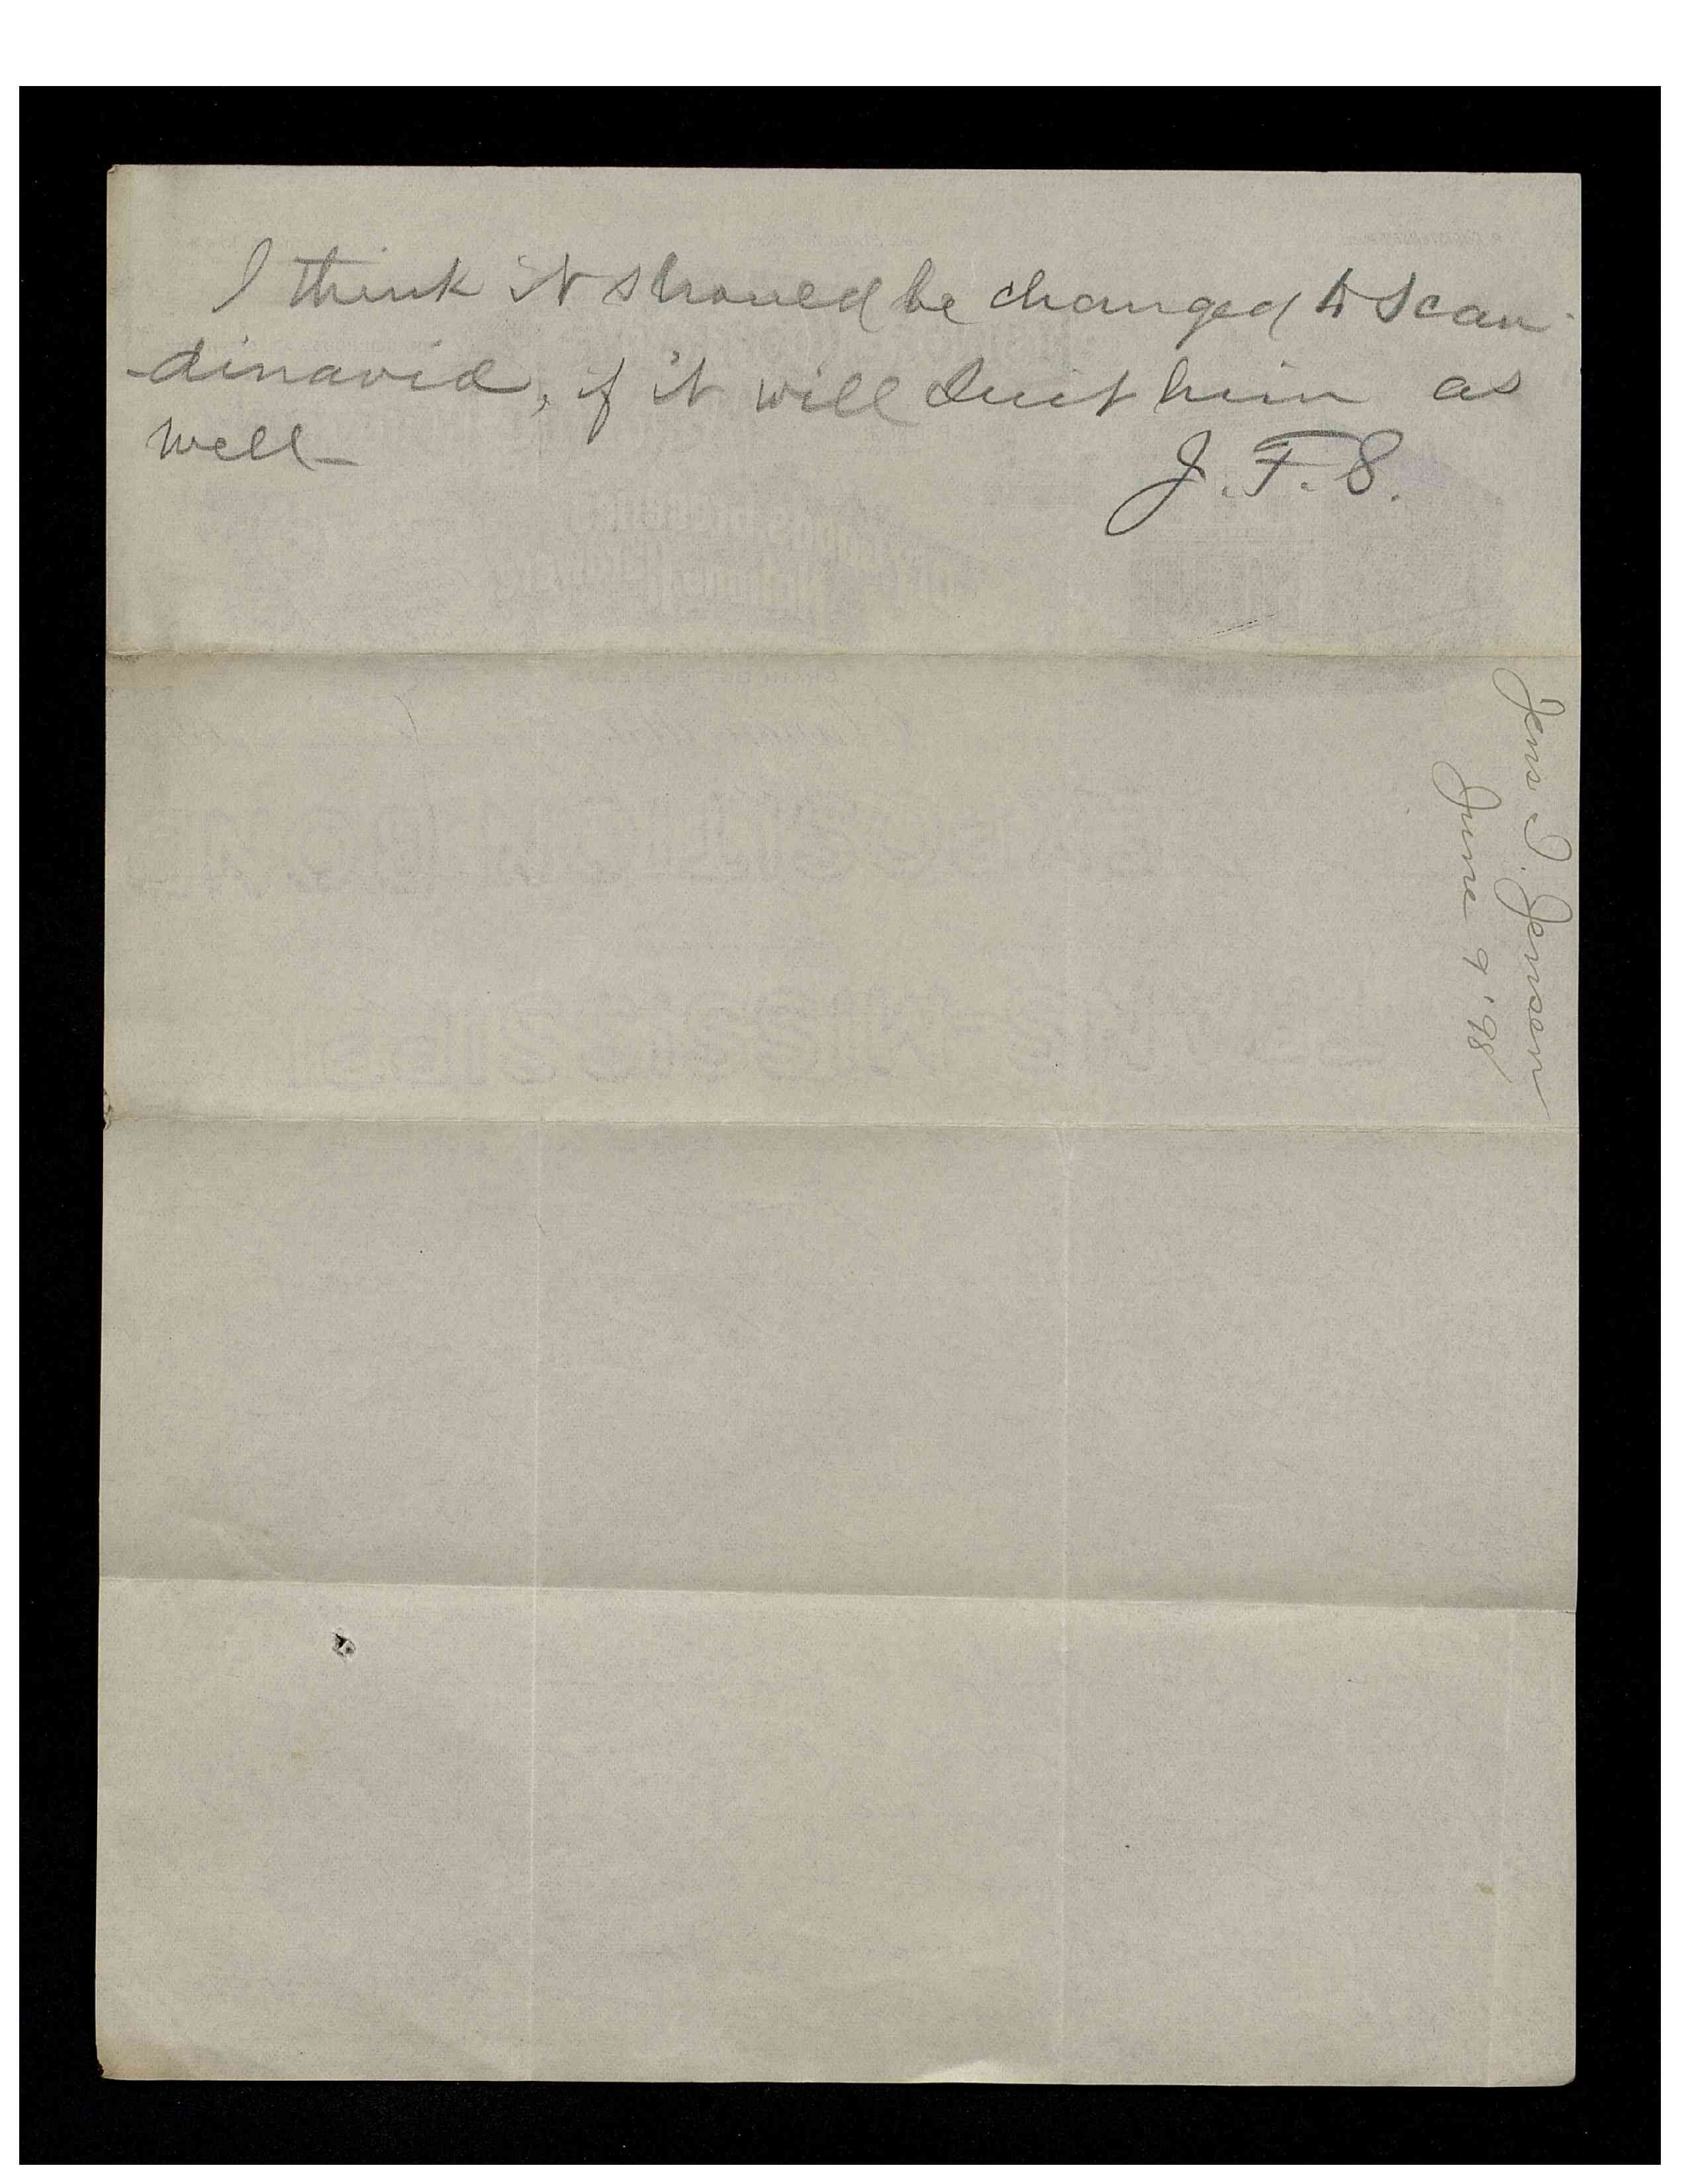 I think it should be changed to Scan-
-dinavia, if it will suit him as
well-
J. F. S.
Jens I. Jenson
June 9 '98